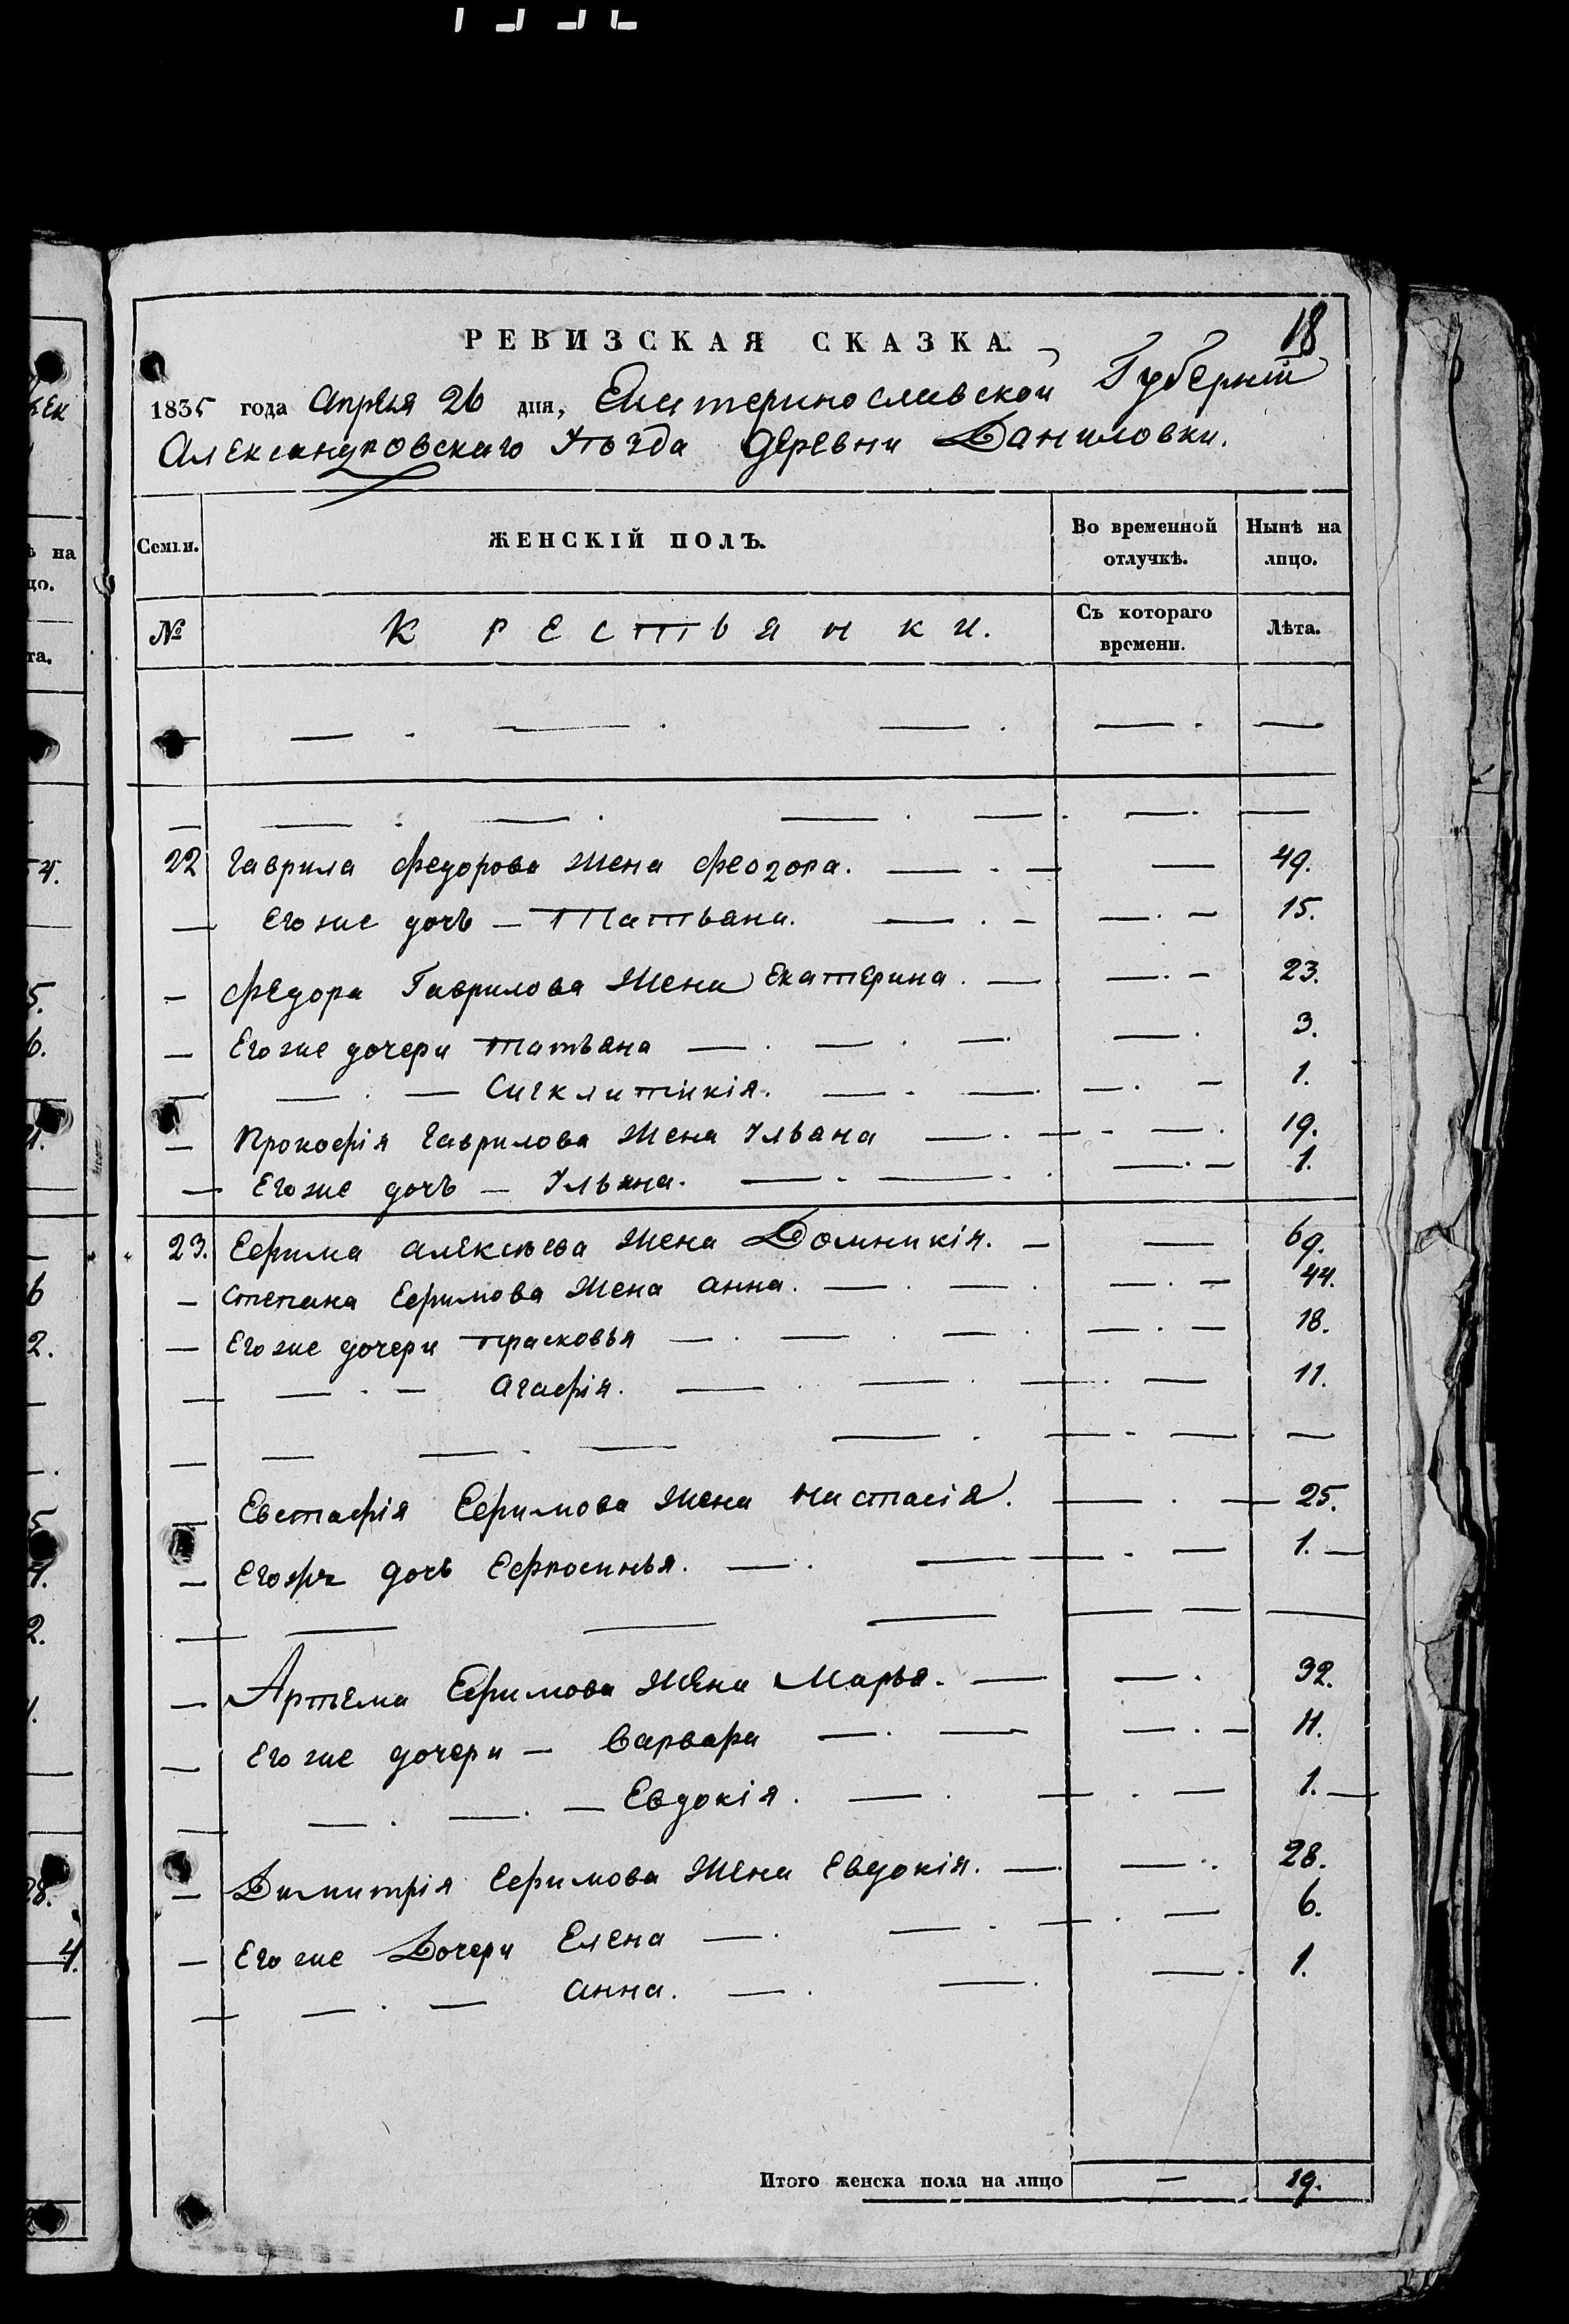 РЕВИЗСКАЯ СКАЗКА.
18
1835 года Апреля 26 дня, Екатеринославской Губернiи
Александровскаго Уѣзда Деревни Даниловки.
Семьи.
ЖЕНСКIЙ ПОЛЪ.
Во временной отлучкѣ.
Нынѣ на лицо.
№
Крестьянки.
Съ котораго времени.
Лѣта.
22 Гаврила Федорова Жена Феодора. 49.
Его же дочь Татьяна. 15.
Федора Гаврилова Жена Екатерина. 23.
Его же дочери Татьяна 3.
Сигклитикiя. 1.
Прокофiя Гаврилова Жена Ульяна 19.
Его же дочь Ульяна. 1.
23. Ефима Алексѣева Жена Домникiя. 69.
Степана Ефимова Жена Анна. 44.
Его же дочери Прасковья 18.
Агафiя. 11.
Евстафiя Ефимова Жена Настасiя. 25.
Его же Дочь Ефросинья. 1.
Артема Ефимова Жена Марья. 32.
Его же дочери Варвара 11.
Евдокiя. 1.
Димитрiя Ефимова Жена Евдокiя. 28.
Его же Дочери Елена 6.
Анна. 1.
Итого женска пола на лицо — 19.